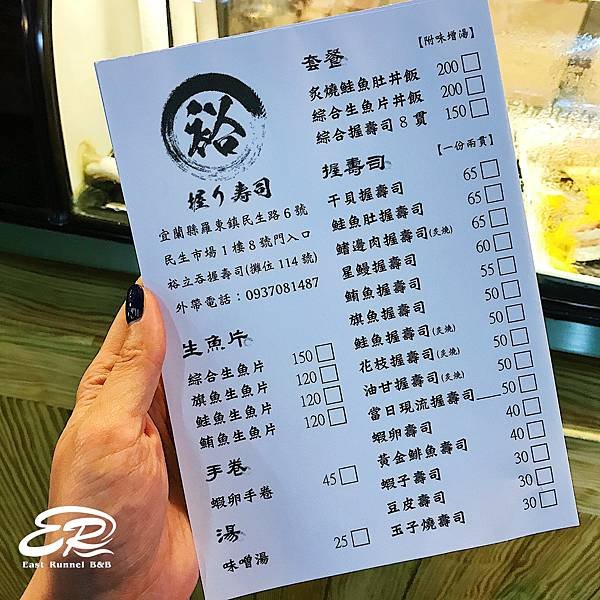 裕
握り寿司
宜蘭縣羅東鎮民生路 6 號
民生市場 1 樓 8 號門入口
裕立吞握壽司(攤位 114 號)
外帶電話：0937081487
生魚片
綜合生魚片 150
旗魚生魚片 120
鮭魚生魚片 120
鮪魚生魚片 120
手卷
蝦卵手卷 45
湯
味噌湯 25
套餐 【附味增湯】
炙燒鮭魚肚丼飯 200
綜合生魚片丼飯 200
綜合握壽司 8 貫 150
握壽司 【一份兩貫】
干貝握壽司 65
鮭魚肚握壽司 65
鰭邊肉握壽司(炙燒) 65
星鰻握壽司 60
鮪魚握壽司 55
旗魚握壽司 50
鮭魚握壽司(炙燒) 50
花枝握壽司(炙燒) 50
油甘握壽司(炙燒) 50
當日現流握壽司___50
蝦卵壽司 40
黃金鯡魚壽司 40
蝦子壽司 30
豆皮壽司 30
玉子燒壽司 30
ER
East Runnel B&B